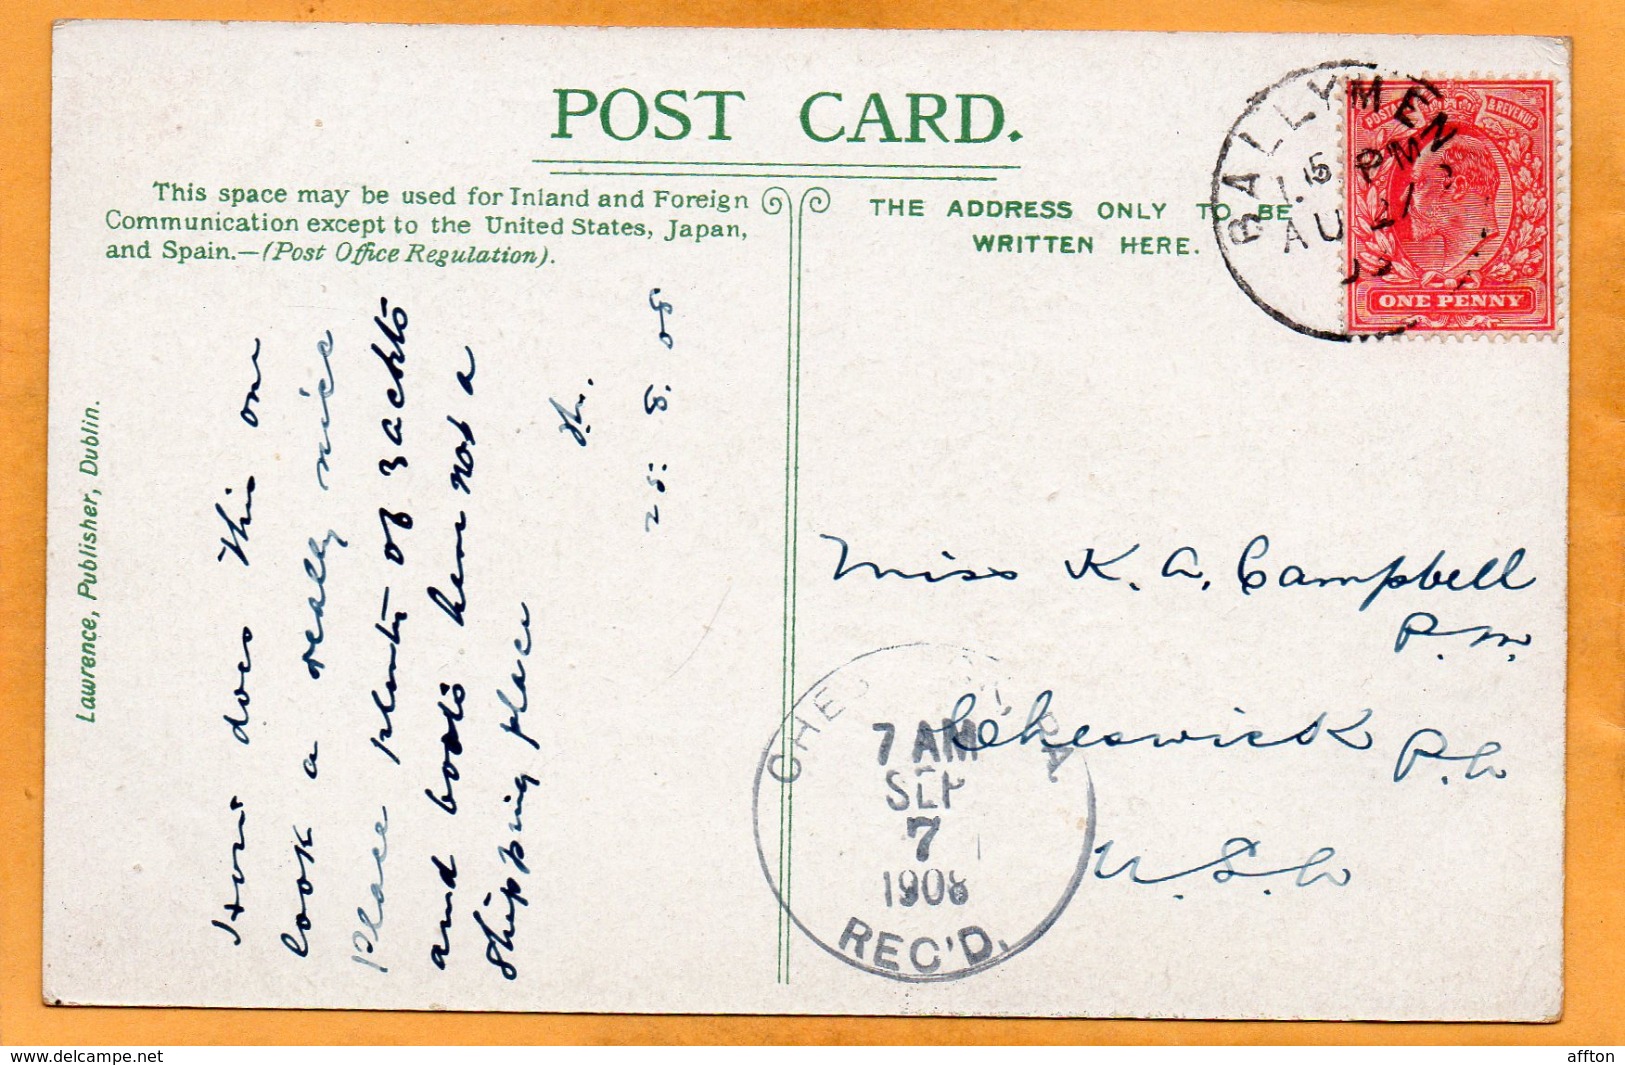 POST CARD.
This space may be used for Inland and Foreign
Communication except to the United States, Japan,
and Spain.—(Post Office Regulation).
THE ADDRESS ONLY TO BE
WRITTEN HERE.
BALLYMEN
5 PM
AU 27
POSTAGE & REVENUE
ONE PENNY
Lawrence, Publisher, Dublin.
How does this one
look a really nice
place plenty of yachts
and boats here not a
shipping place
25: 8. 08
Miss K. A. Campbell
P. M.
Cheswick P.A
U.S.A
CHES PA
7 AM
SEP
7
1908
REC'D.
delcampe.net
affton